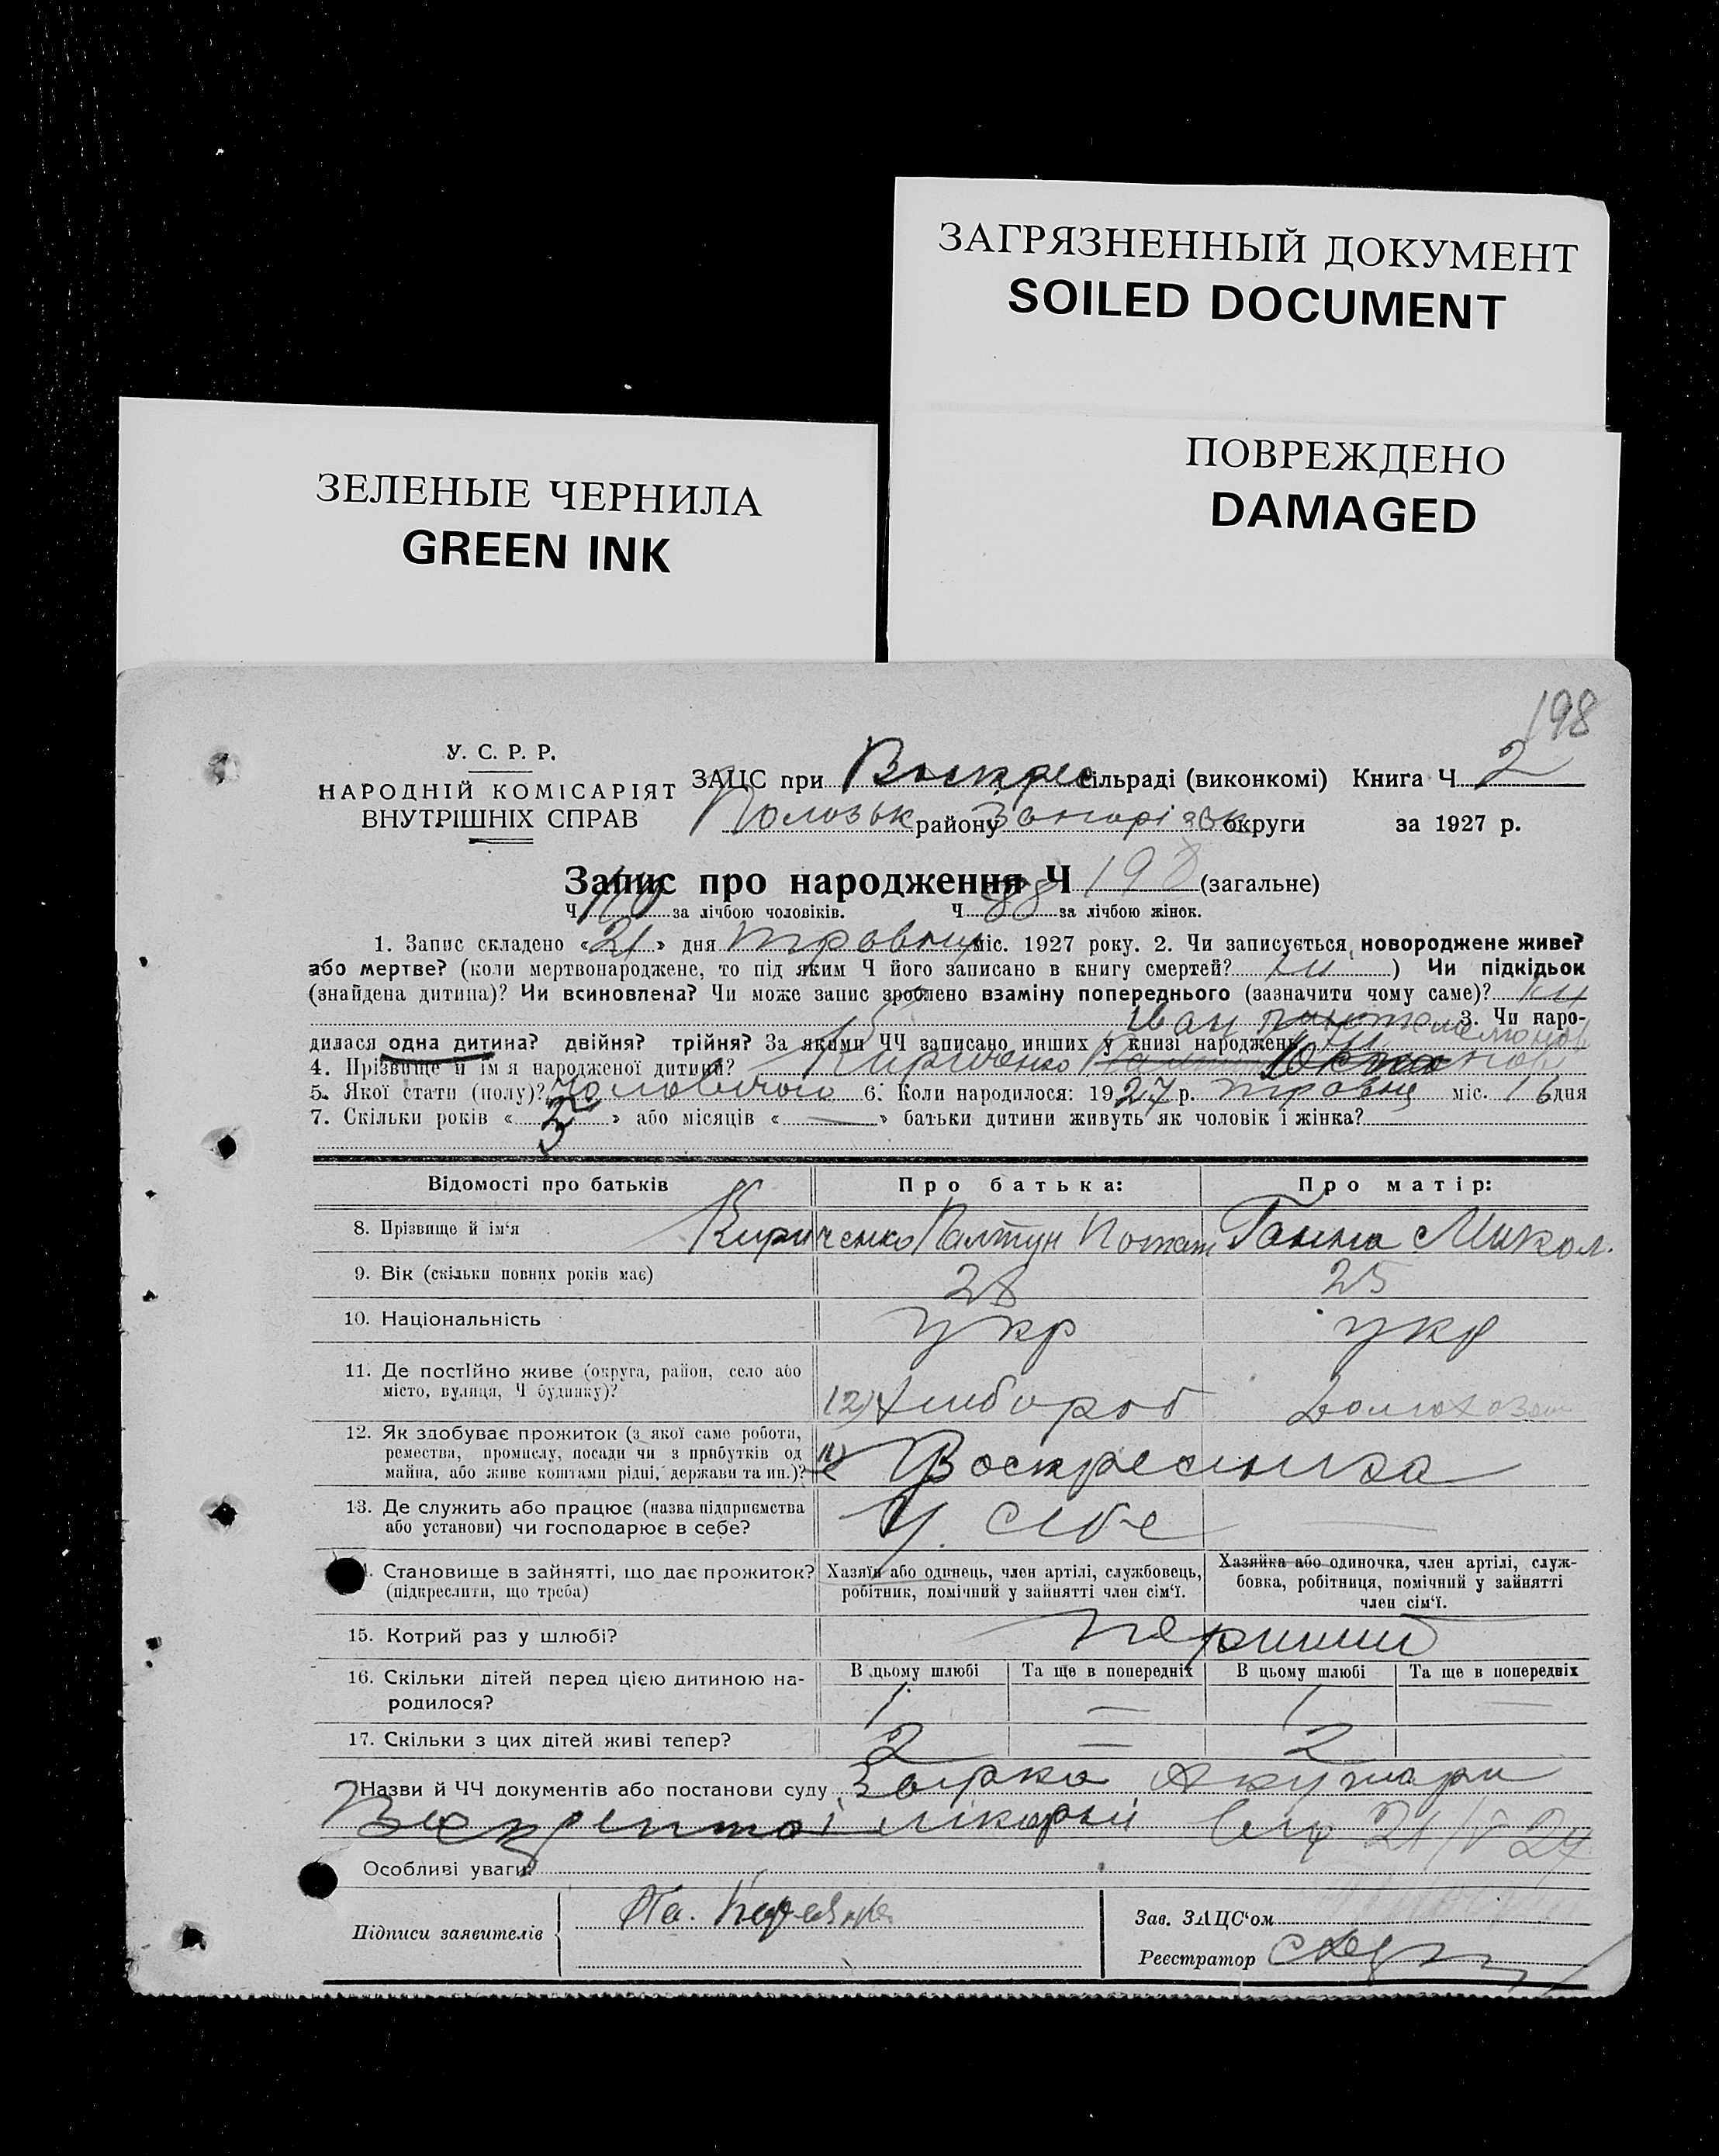 ЗАГРЯЗНЕННЫЙ ДОКУМЕНТ
SOILED DOCUMENT
ПОВРЕЖДЕНО
DAMAGED
ЗЕЛЕНЫЕ ЧЕРНИЛА
GREEN INK
198
У. С. Р. Р.
НАРОДНІЙ КОМІСАРІЯТ
ВНУТРІШНІХ СПРАВ
ЗАЦС при Воскрес сільраді (виконкомі) Книга Ч 2
Пологськ району Запоріжськ округи за 1927 р.
Запис про народження Ч 198 (загальне)
Ч 110 за лічбою чоловіків. Ч 88 за лічбою жінок.
1. Запис складено «21» дня травня міс. 1927 року. 2. Чи записується новороджене живе?
або мертве? (коли мертвонароджене, то під яким Ч його записано в книгу смертей? ні ) Чи підкідьок
(знайдена дитина)? Чи всиновлена? Чи може запис зроблено взаміну попереднього (зазначити чому саме)? ні
Іван 3. Чи наро-
дилася одна дитина? двійня? трійня? За якими ЧЧ записано инших у книзі народжень ні
4. Прізвище й ім'я народженої дитини? Кириченко
5. Якої стати (полу)? Чоловічого 6. Коли народилося: 1927 р. травня міс. 16 дня
7. Скільки років « 3 » або місяців « — » батьки дитини живуть як чоловік і жінка?
Відомості про батьків Про батька: Про матір:
8. Прізвище й ім'я Кириченко Ганна Микол.
9. Вік (скільки повних років має) 28 25
10. Національність укр укр
11. Де постійно живе (округа, район, село або
місто, вулиця, Ч будинку)? 12) Хлібороб Домохозяй
12. Як здобуває прожиток (з якої саме роботи,
ремества, промислу, посади чи з прибутків од
майна, або живе коштами рідні, держави та ин.)? 11) с Воскресенка
13. Де служить або працює (назва підприємства
або установи) чи господарює в себе? У себе —
14. Становище в зайнятті, що дає прожиток?
(підкреслити, що треба)
Хазяїн або одинець, член артілі, службовець,
робітник, помічний у зайнятті член сім'ї.
Хазяйка або одиночка, член артілі, служ-
бовка, робітниця, помічний у зайнятті
член сім'ї.
15. Котрий раз у шлюбі? перший
16. Скільки дітей перед цією дитиною на-
родилося?
В цьому шлюбі Та ще в попередніх В цьому шлюбі Та ще в попередніх
1 — 1 —
17. Скільки з цих дітей живі тепер? 2 — 2
Назви й ЧЧ документів або постанови суду Справка Акушерки
лікарні від 21/V 27
Особливі уваги:
Підписи заявителів
Зав. ЗАЦС'ом
Реєстратор